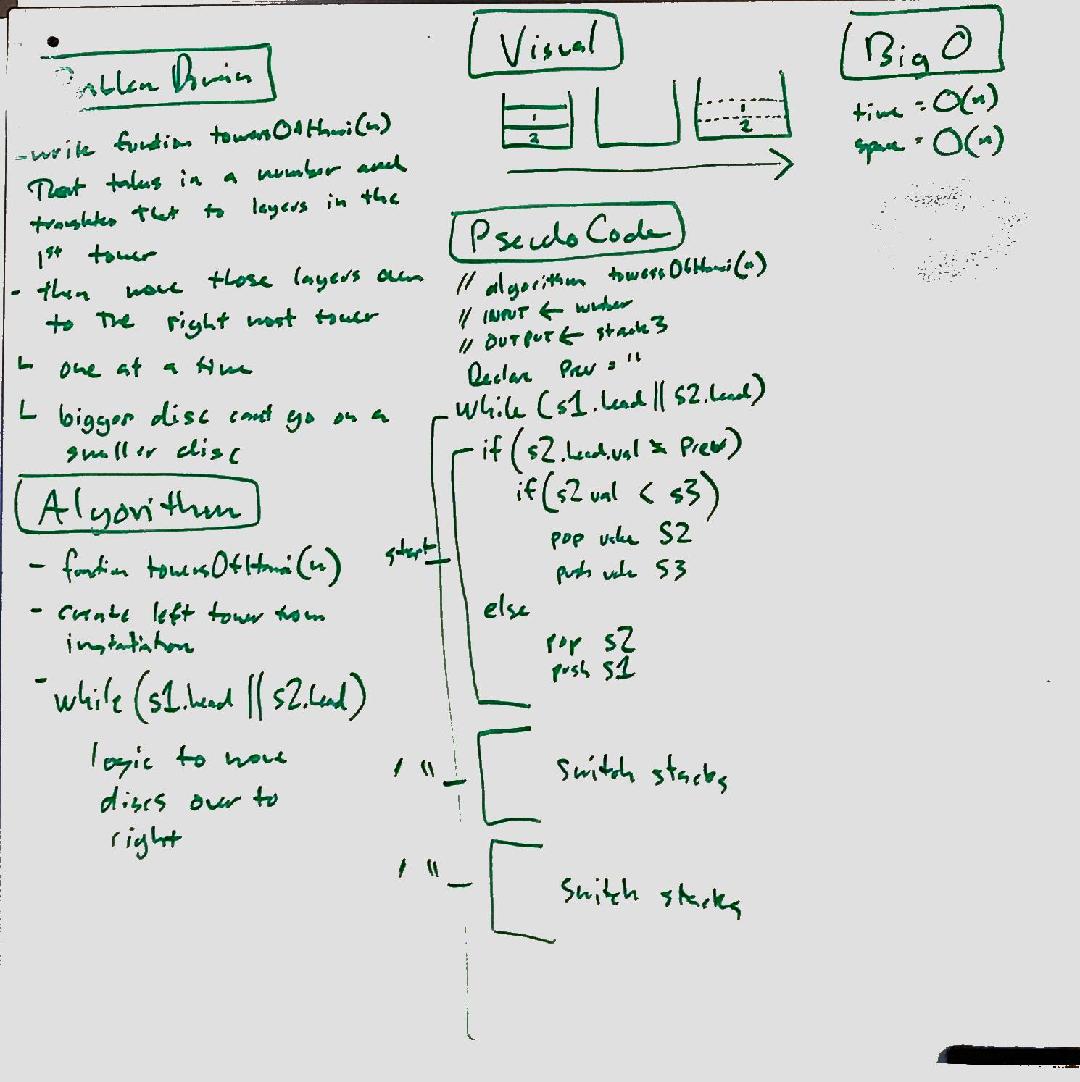 Problem Domain
- write function towersOfHanoi(n)
That takes in a number and
translates that to layers in the
1st tower
- then move those layers over
to the right most tower
└ one at a time
└ bigger disc cant go on a
smaller disc
Algorithm
- function towersOfHanoi(n)
- create left tower from
instatiation
- while (s1.head || s2.head)
logic to move
discs over to
right
Visual
1
2
1
2
PseudoCode
// algorithm towersOfHanoi(n)
// INPUT ← number
// OUTPUT ← stack3
Declare Prev = ''
while (s1.head || s2.head)
if (s2.head.val Prev)
if (s2 val < s3)
start
pop value S2
push value S3
else
pop s2
push S1
/ "
Switch stacks
/ "
Switch stacks
Big O
time = O(n)
space = O(n)